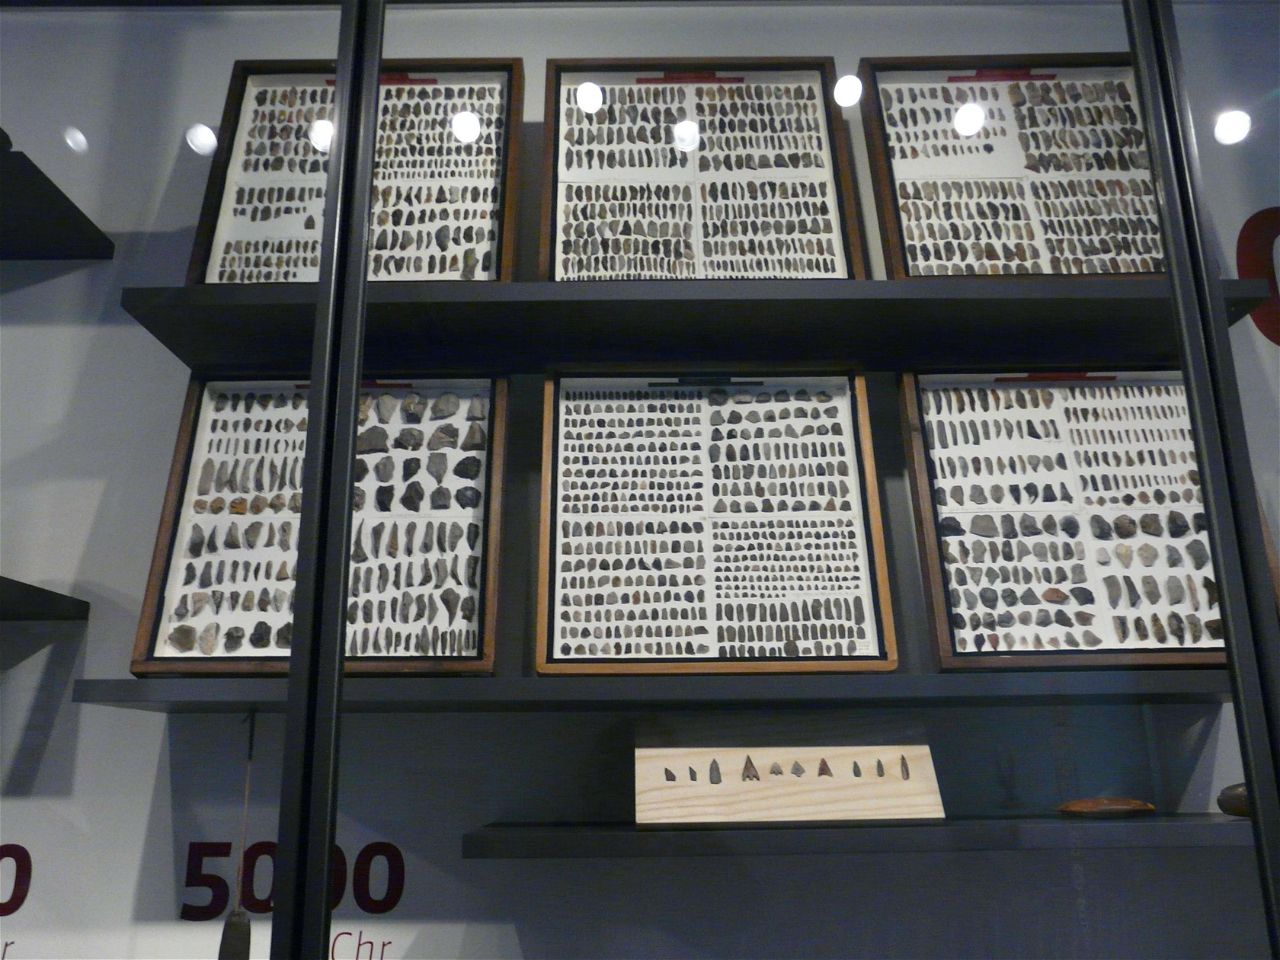 0
5000
r
Chr